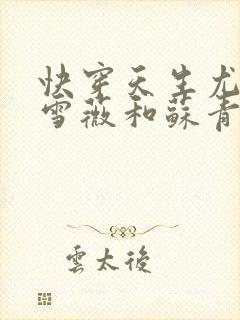 快穿天生尤
雪薇和蘇青
雲太後